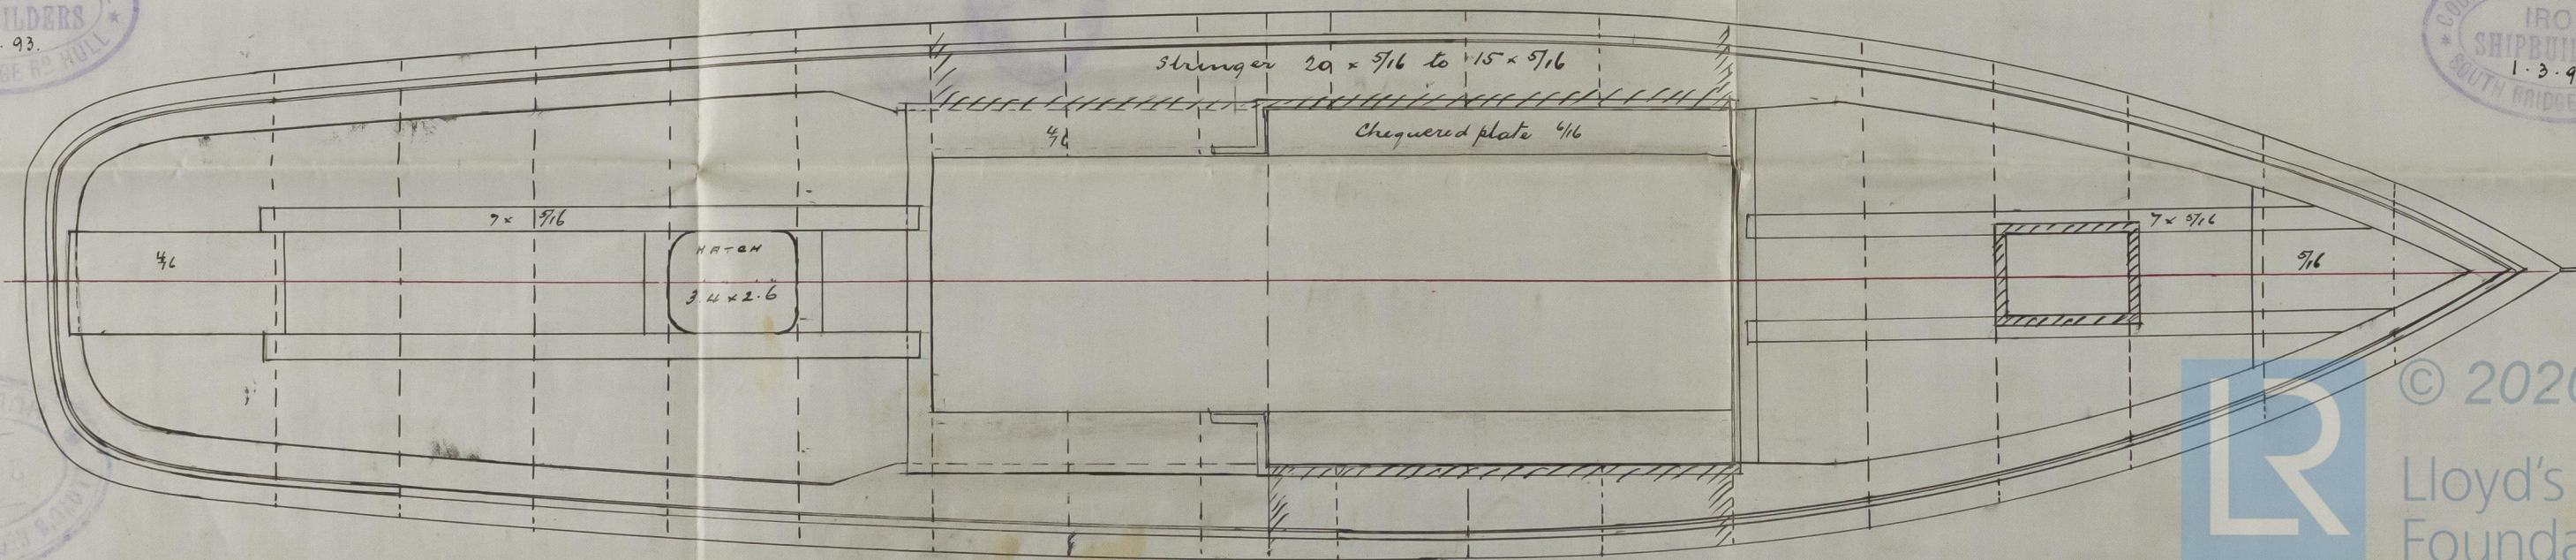 ILDERS
93.
GE RD HULL
IRO
SHIPBUIL
1.3.9
SOUTH BRIDGE
Stringer 20 x 5/16 to 15 x 5/16
4/16
Chequered plate 6/16
7 x 5/16
7 x 5/16
HATCH
3.4 x 2.6
4/16
5/16
© 2020
Lloyd's
Founda
LR